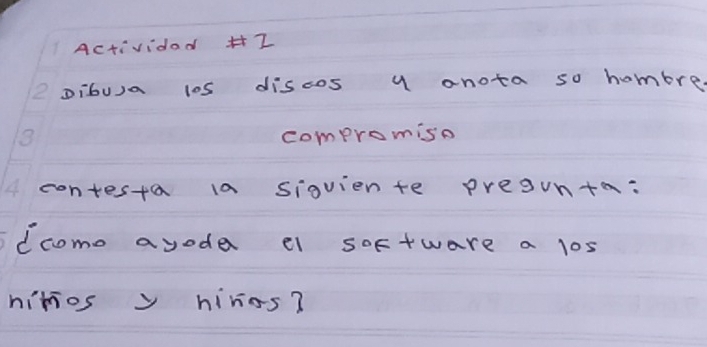 1 Actividad #1
2 Dibuja los discos y anota su nombre.
3 compromiso
4 contesta la siguiente pregunta:
5 ¿como ayuda el software a los
niños y niñas?